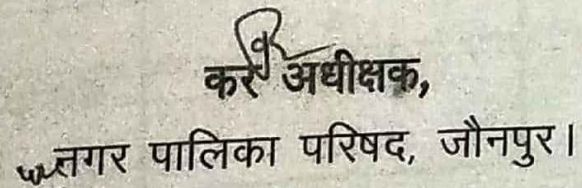 कर अधीक्षक,
नगर पालिका परिषद, जौनपुर।